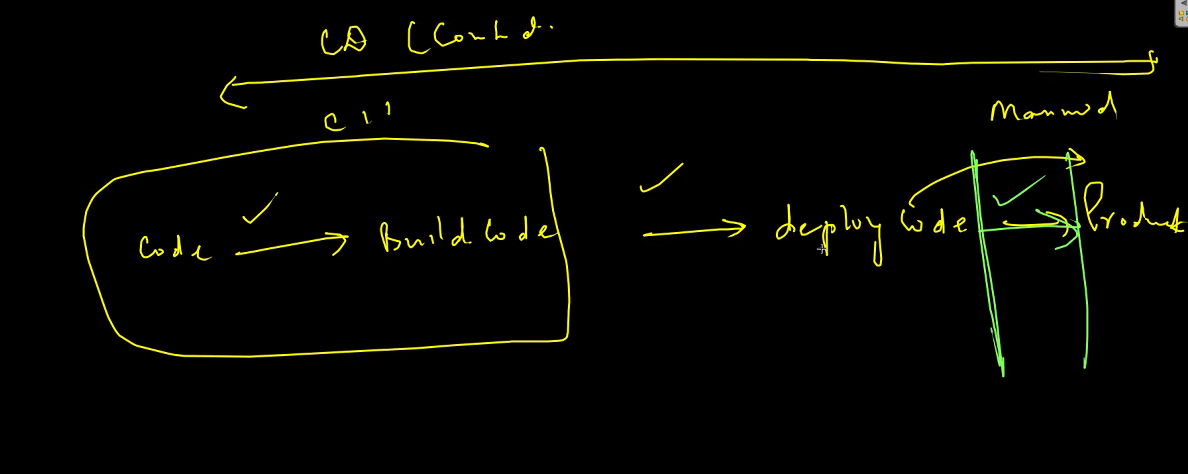 CD (Contd..
Manual
Code Build Code deploy Code Product